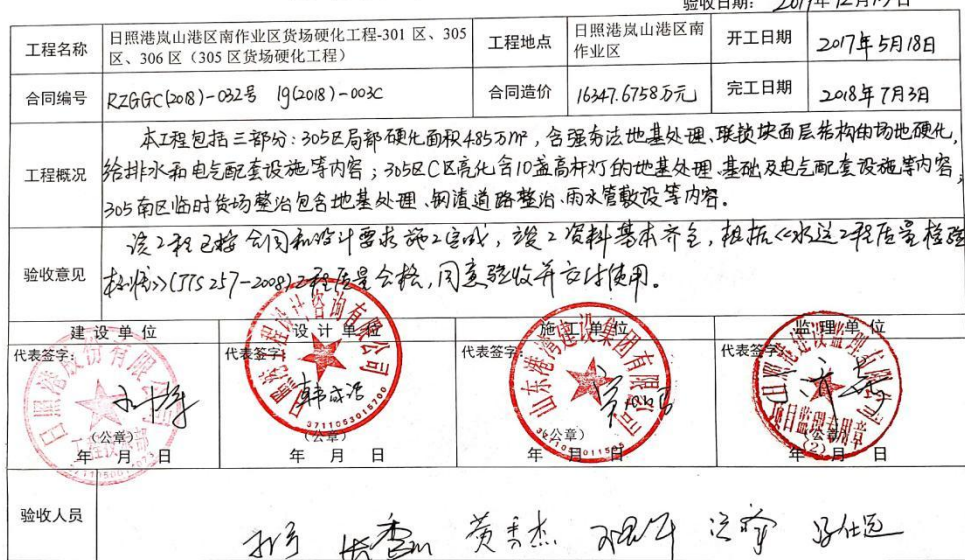 验收日期: 2019年12月19日
工程名称 日照港岚山港区南作业区货场硬化工程-301 区、305
区、306 区（305 区货场硬化工程）
工程地点 日照港岚山港区南
作业区
开工日期 2017年5月18日
合同编号 RZGGC(2018)-032号 lg(2018)-003C 合同造价 16347.6758万元 完工日期 2018年7月3日
工程概况
本工程包括三部分：305区局部硬化面积4.85万m²，含强夯法地基处理、联锁块面层结构的场地硬化，
给排水和电气配套设施等内容；305区C区亮化含10盏高杆灯的地基处理、基础及电气配套设施等内容；
305南区临时货场整治包含地基处理、钢渣道路整治、雨水管敷设等内容。
验收意见
该工程已按合同和设计要求施工完成，竣工资料基本齐全，根据《水运工程质量检验
标准》(JTS 257-2008)工程质量合格，同意验收并交付使用。
建设单位 设计单位 施工单位 监理单位
代表签字： 代表签字： 代表签字 代表签字
日照港股份有限公司
山东港湾建设集团有限公司
项目监理专用章
(2)
韩成浩
3711053015700
（公章） （公章） （公章） （公章）
年 月 日 年 月 日 年 月 日 年 月 日
验收人员
黄秀杰